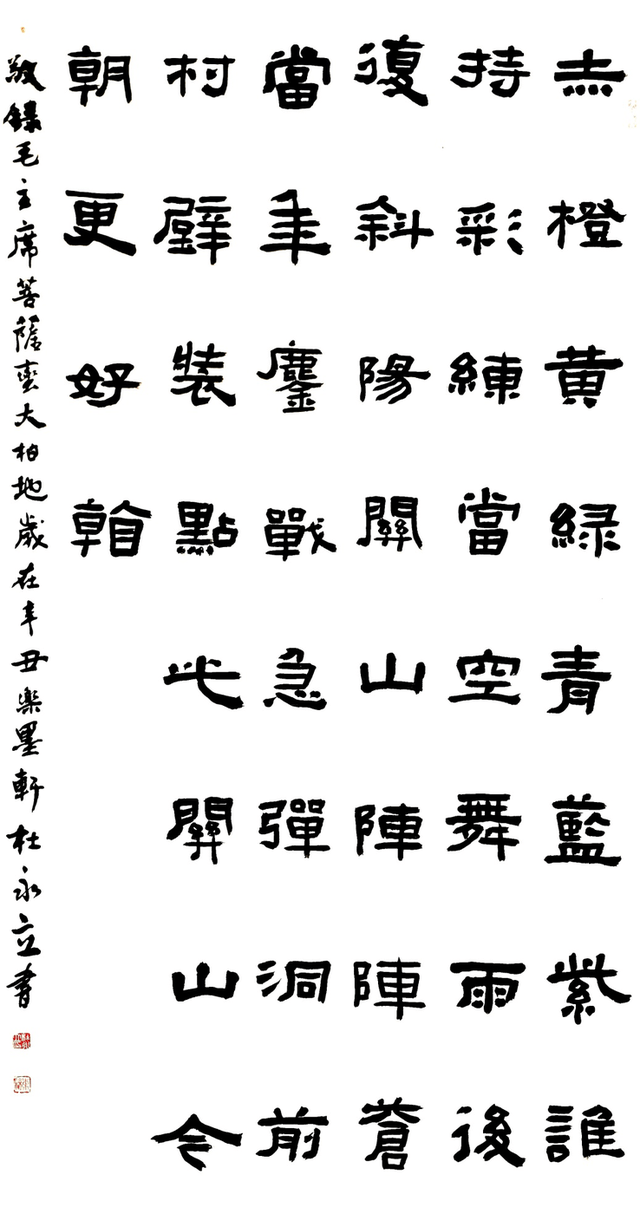 赤橙黃綠青藍紫誰
持彩練當空舞雨後
復斜陽關山陣陣蒼
當年鏖戰急彈洞前
村壁裝點此關山今
朝更好看
敬錄毛主席菩薩蠻大柏地歲在辛丑樂墨軒杜永立書